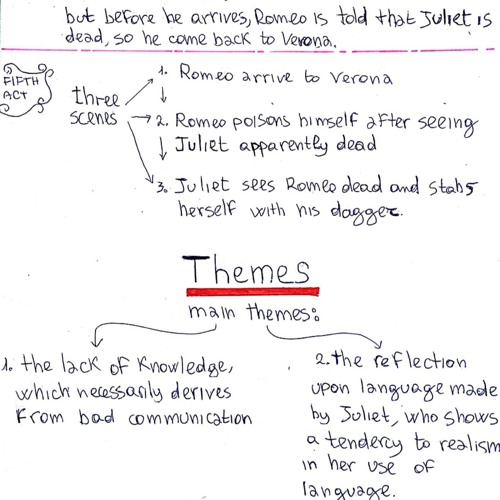 but before he arrives, Romeo is told that Juliet is
dead, so he come back to Verona.
FIFTH
ACT
three
scenes
1. Romeo arrive to Verona
2. Romeo poisons himself after seeing
Juliet apparently dead
3. Juliet sees Romeo dead and stabs
herself with his dagger.
Themes
main themes:
1. the lack of knowledge,
which necessarily derives
from bad communication
2. the reflection
upon language made
by Juliet, who shows
a tendercy to realism
in her use of
language.